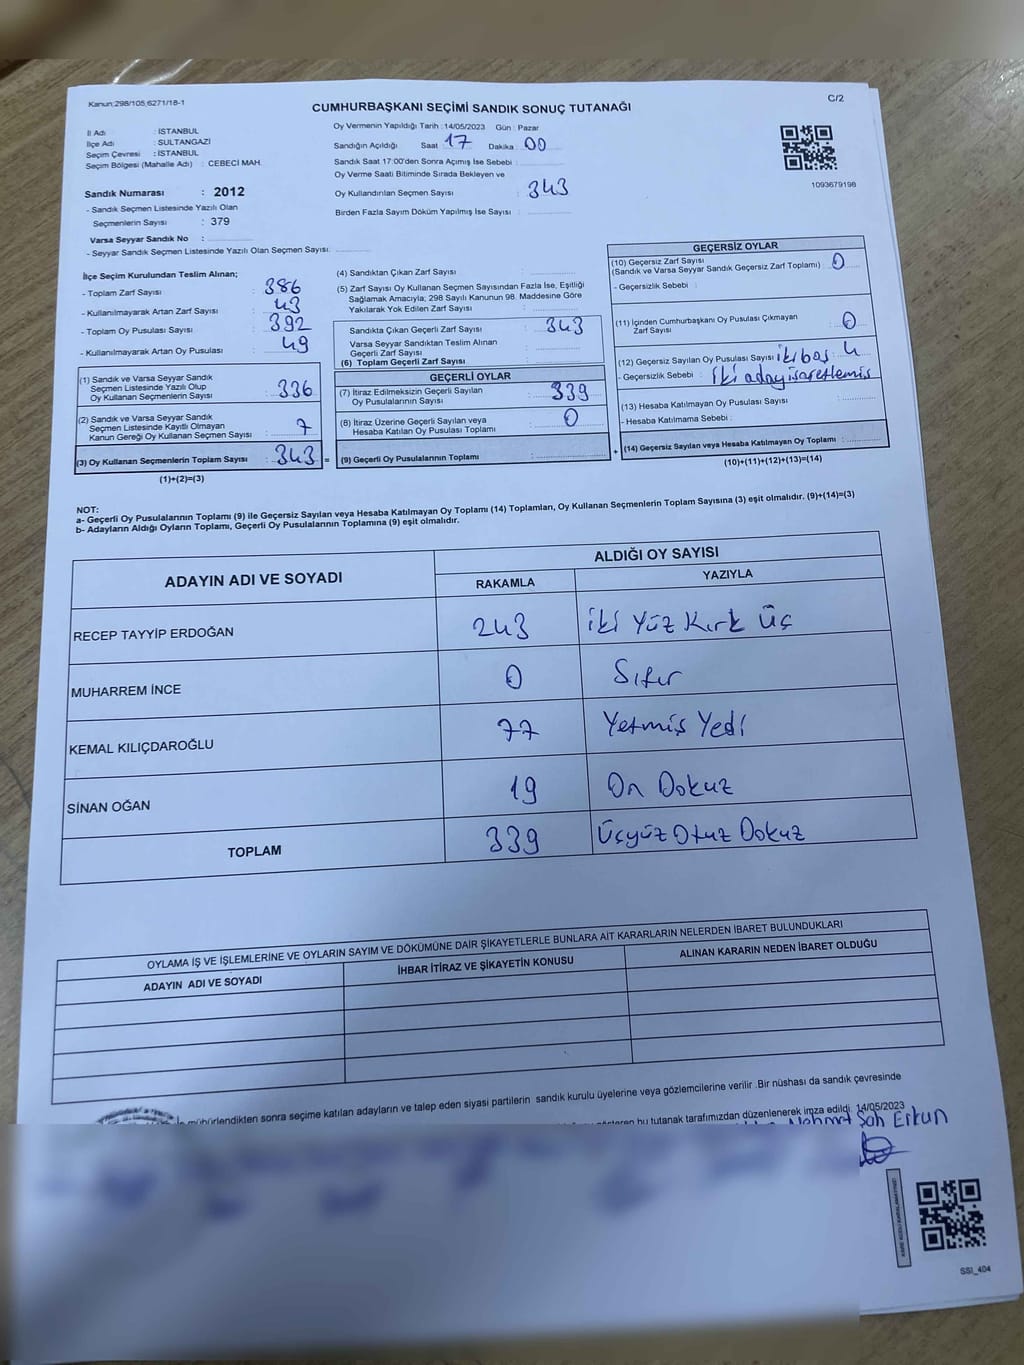 Kanun:298/105,6271/18-1
C/2
CUMHURBAŞKANI SEÇİMİ SANDIK SONUÇ TUTANAĞI
İl Adı : İSTANBUL
İlçe Adı : SULTANGAZİ
Seçim Çevresi : İSTANBUL
Seçim Bölgesi (Mahalle Adı) : CEBECİ MAH.
Sandık Numarası : 2012
- Sandık Seçmen Listesinde Yazılı Olan
Seçmenlerin Sayısı : 379
Varsa Seyyar Sandık No :
- Seyyar Sandık Seçmen Listesinde Yazılı Olan Seçmen Sayısı:
Oy Vermenin Yapıldığı Tarih :14/05/2023 Gün : Pazar
Sandığın Açıldığı Saat 17 Dakika 00
Sandık Saat 17:00'den Sonra Açımış İse Sebebi :
Oy Verme Saati Bitiminde Sırada Bekleyen ve
Oy Kullandırılan Seçmen Sayısı : 343
Birden Fazla Sayım Döküm Yapılmış İse Sayısı :
1093679198
İlçe Seçim Kurulundan Teslim Alınan;
- Toplam Zarf Sayısı : 386
- Kullanılmayarak Artan Zarf Sayısı : 43
- Toplam Oy Pusulası Sayısı : 392
- Kullanılmayarak Artan Oy Pusulası : 49
(1) Sandık ve Varsa Seyyar Sandık
Seçmen Listesinde Yazılı Olup
Oy Kullanan Seçmenlerin Sayısı : 336
(2) Sandık ve Varsa Seyyar Sandık
Seçmen Listesinde Kayıtlı Olmayan
Kanun Gereği Oy Kullanan Seçmen Sayısı : 7
(3) Oy Kullanan Seçmenlerin Toplam Sayısı : 343 =
(1)+(2)=(3)
(4) Sandıktan Çıkan Zarf Sayısı :
(5) Zarf Sayısı Oy Kullanan Seçmen Sayısından Fazla İse, Eşitliği
Sağlamak Amacıyla; 298 Sayılı Kanunun 98. Maddesine Göre
Yakılarak Yok Edilen Zarf Sayısı :
Sandıkta Çıkan Geçerli Zarf Sayısı : 343
Varsa Seyyar Sandıktan Teslim Alınan
Geçerli Zarf Sayısı :
(6) Toplam Geçerli Zarf Sayısı :
GEÇERLİ OYLAR
(7) İtiraz Edilmeksizin Geçerli Sayılan
Oy Pusulalarının Sayısı : 339
(8) İtiraz Üzerine Geçerli Sayılan veya
Hesaba Katılan Oy Pusulası Toplamı : 0
(9) Geçerli Oy Pusulalarının Toplamı : +
GEÇERSİZ OYLAR
(10) Geçersiz Zarf Sayısı
(Sandık ve Varsa Seyyar Sandık Geçersiz Zarf Toplamı) : 0
- Geçersizlik Sebebi :
(11) İçinden Cumhurbaşkanı Oy Pusulası Çıkmayan
Zarf Sayısı : 0
(12) Geçersiz Sayılan Oy Pusulası Sayısı : iki boş 4
- Geçersizlik Sebebi : iki aday işaretlemiş
(13) Hesaba Katılmayan Oy Pusulası Sayısı :
- Hesaba Katılmama Sebebi :
(14) Geçersiz Sayılan veya Hesaba Katılmayan Oy Toplamı :
(10)+(11)+(12)+(13)=(14)
NOT:
a- Geçerli Oy Pusulalarının Toplamı (9) ile Geçersiz Sayılan veya Hesaba Katılmayan Oy Toplamı (14) Toplamları, Oy Kullanan Seçmenlerin Toplam Sayısına (3) eşit olmalıdır. (9)+(14)=(3)
b- Adayların Aldığı Oyların Toplamı, Geçerli Oy Pusulalarının Toplamına (9) eşit olmalıdır.
ADAYIN ADI VE SOYADI
ALDIĞI OY SAYISI
RAKAMLA YAZIYLA
RECEP TAYYİP ERDOĞAN 243 iki Yüz Kırk Üç
MUHARREM İNCE 0 Sıfır
KEMAL KILIÇDAROĞLU 77 Yetmiş Yedi
SİNAN OĞAN 19 On Dokuz
TOPLAM 339 Üçyüz Otuz Dokuz
OYLAMA İŞ VE İŞLEMLERİNE VE OYLARIN SAYIM VE DÖKÜMÜNE DAİR ŞİKAYETLERLE BUNLARA AİT KARARLARIN NELERDEN İBARET BULUNDUKLARI
ADAYIN ADI VE SOYADI İHBAR İTİRAZ VE ŞİKAYETİN KONUSU ALINAN KARARIN NEDEN İBARET OLDUĞU
mühürlendikten sonra seçime katılan adayların ve talep eden siyasi partilerin sandık kurulu üyelerine veya gözlemcilerine verilir .Bir nüshası da sandık çevresinde
bu tutanak tarafımızdan düzenlenerek imza edildi. 14/05/2023
Mehmet Şah Erkun
SSI_404